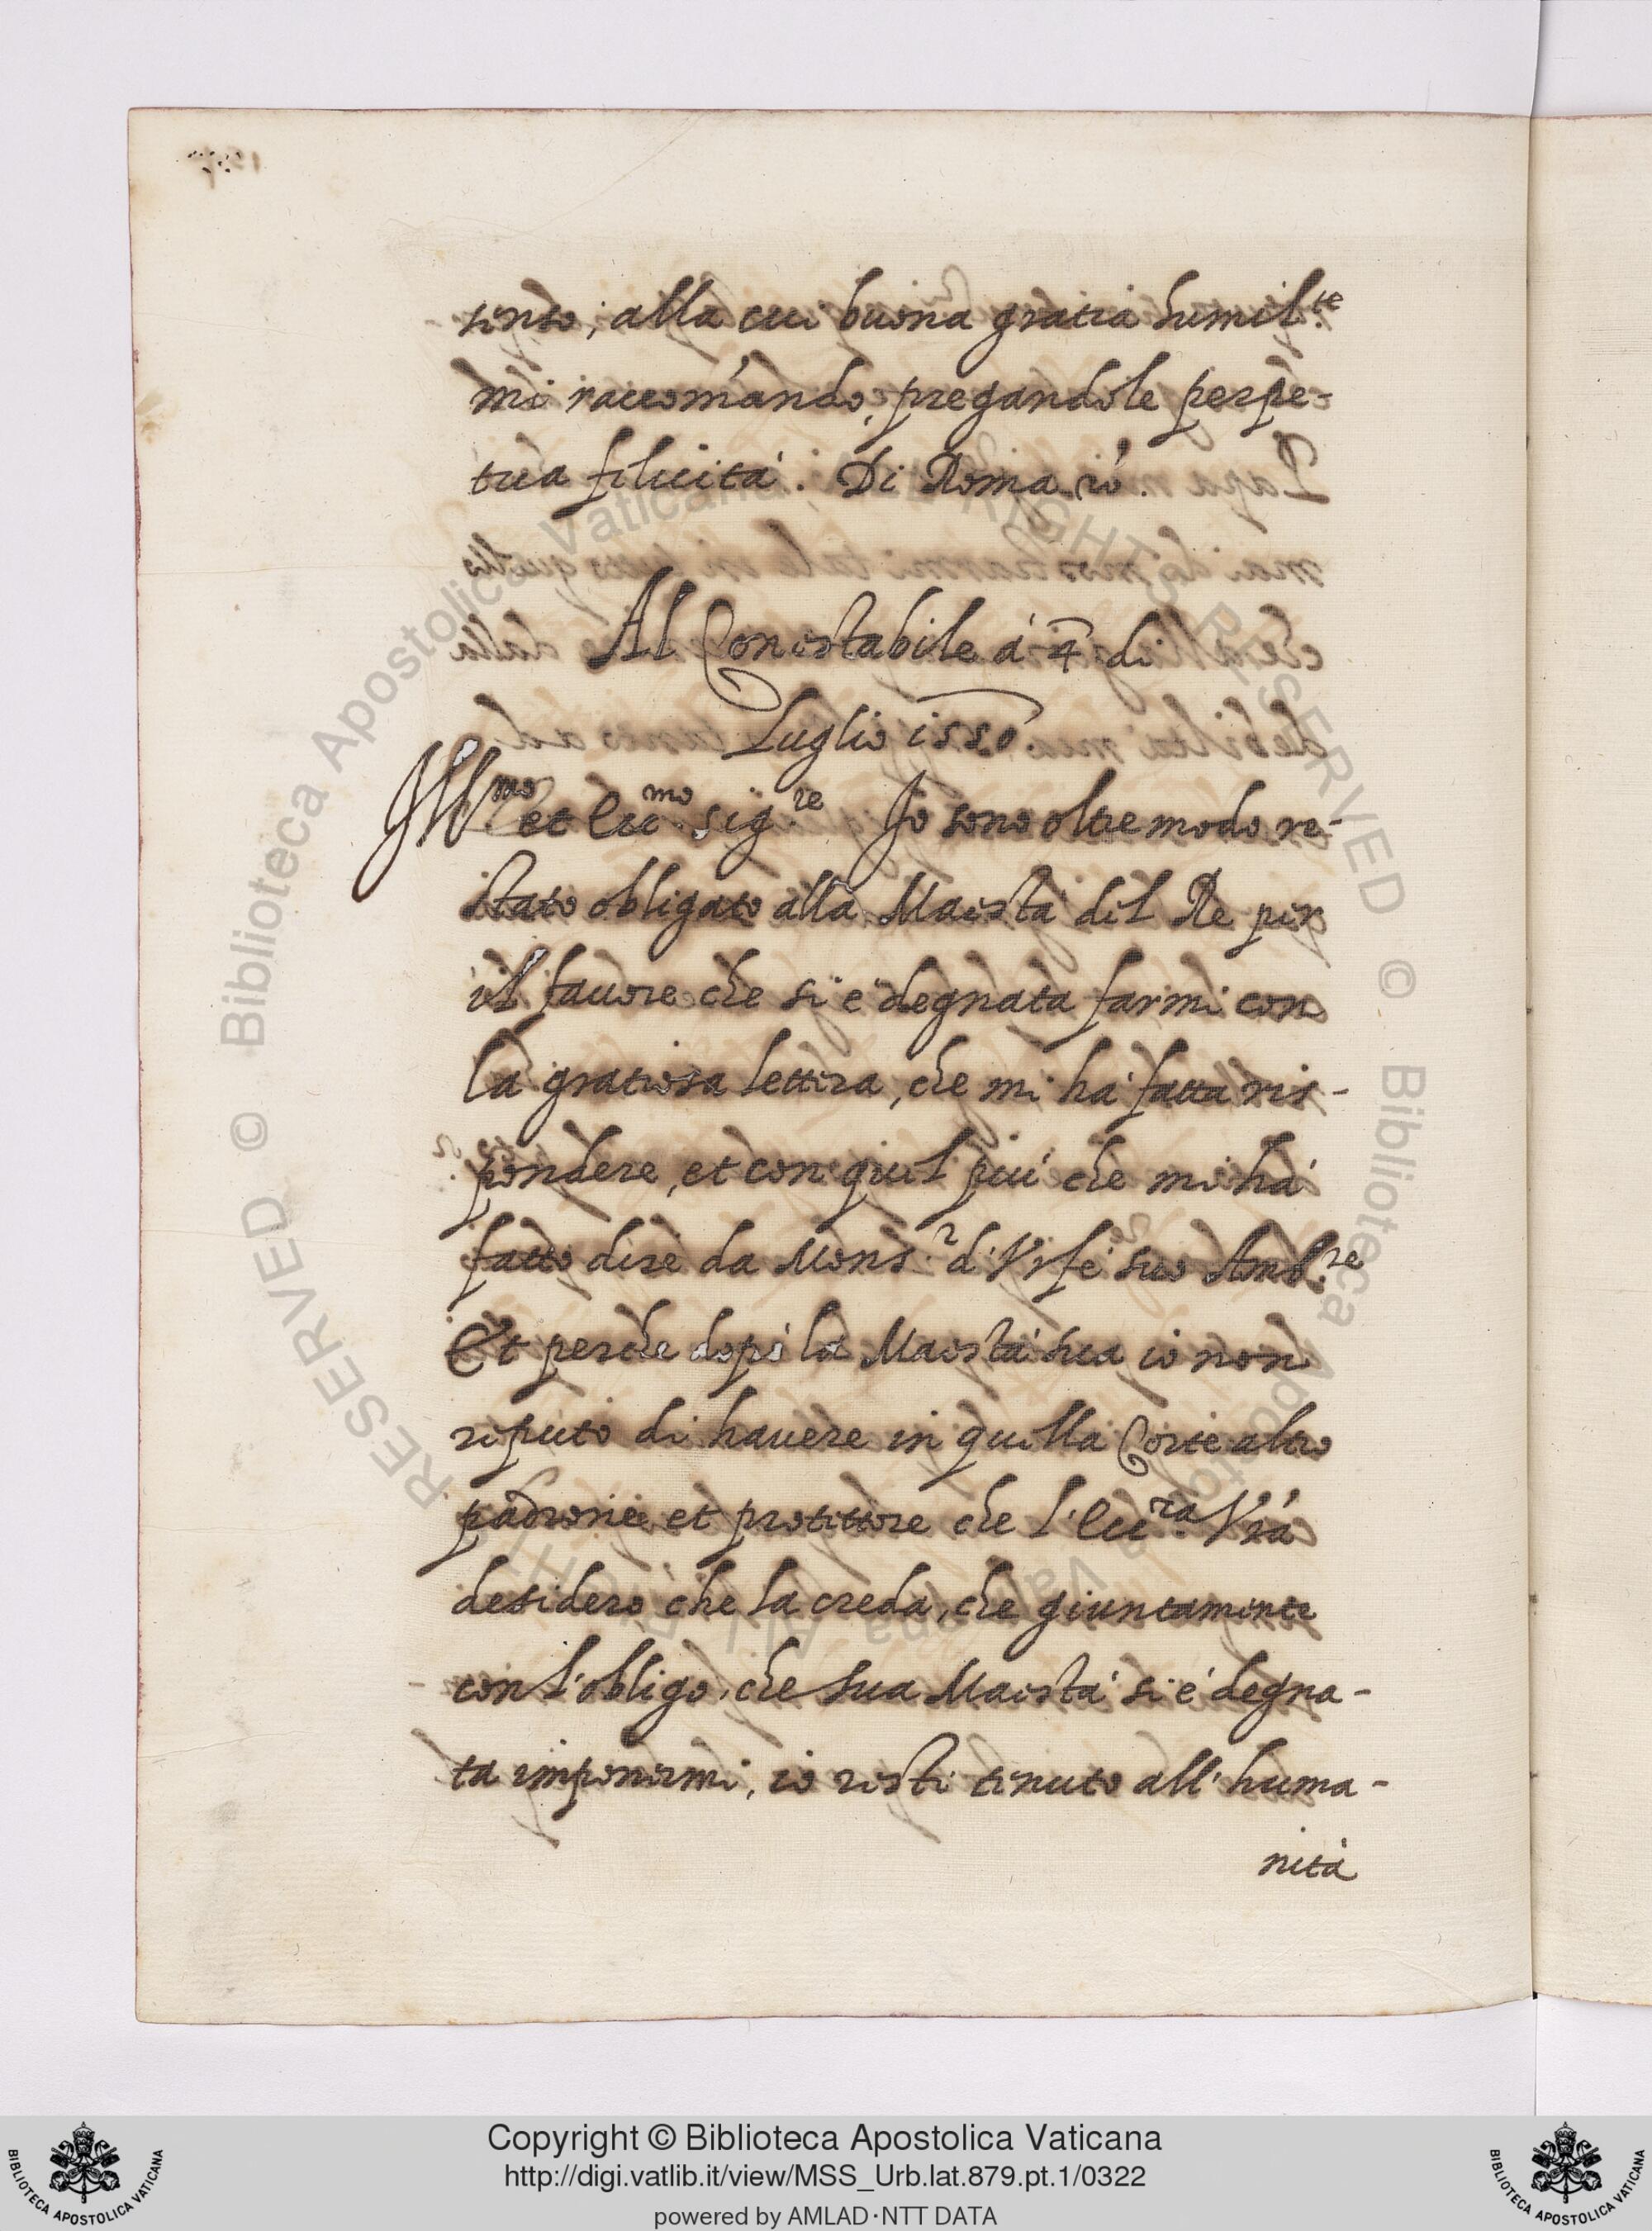 sento, alla cui buona gratia humil.te
mi raccomando, pregandole perpe-
tua felicità. Di Roma
Al Conestabile à 4 di
Luglio 1550.
Ill.mo et Ecc.mo Sig.re Io sono oltre modo re-
stato obligato alla Maestà del Re per
il favore che si è degnata farmi con
la gratiosa lettera, che mi hà fatta ris-
pondere, et con quel più che mi hà
fatto dire da Mons.r d'Vrfè suo Amb.re
Et perche dopò la Maestà sua io non
reputo di havere in quella Corte altro
padrone et protettore che l'Ecc.za Vra
desidero che la creda, che giuntamente
con l'obligo, che sua Maestà si è degna-
ta impormi, io resti tenuto all'huma-
nità
RESERVED © Biblioteca Apostolica Vaticana ALL RIGHTS RESERVED © Biblioteca Apostolica Vaticana ALL RIGHTS
BIBLIOTECA APOSTOLICA VATICANA
Copyright © Biblioteca Apostolica Vaticana
http://digi.vatlib.it/view/MSS_Urb.lat.879.pt.1/0322
powered by AMLAD·NTT DATA
BIBLIOTECA APOSTOLICA VATICANA